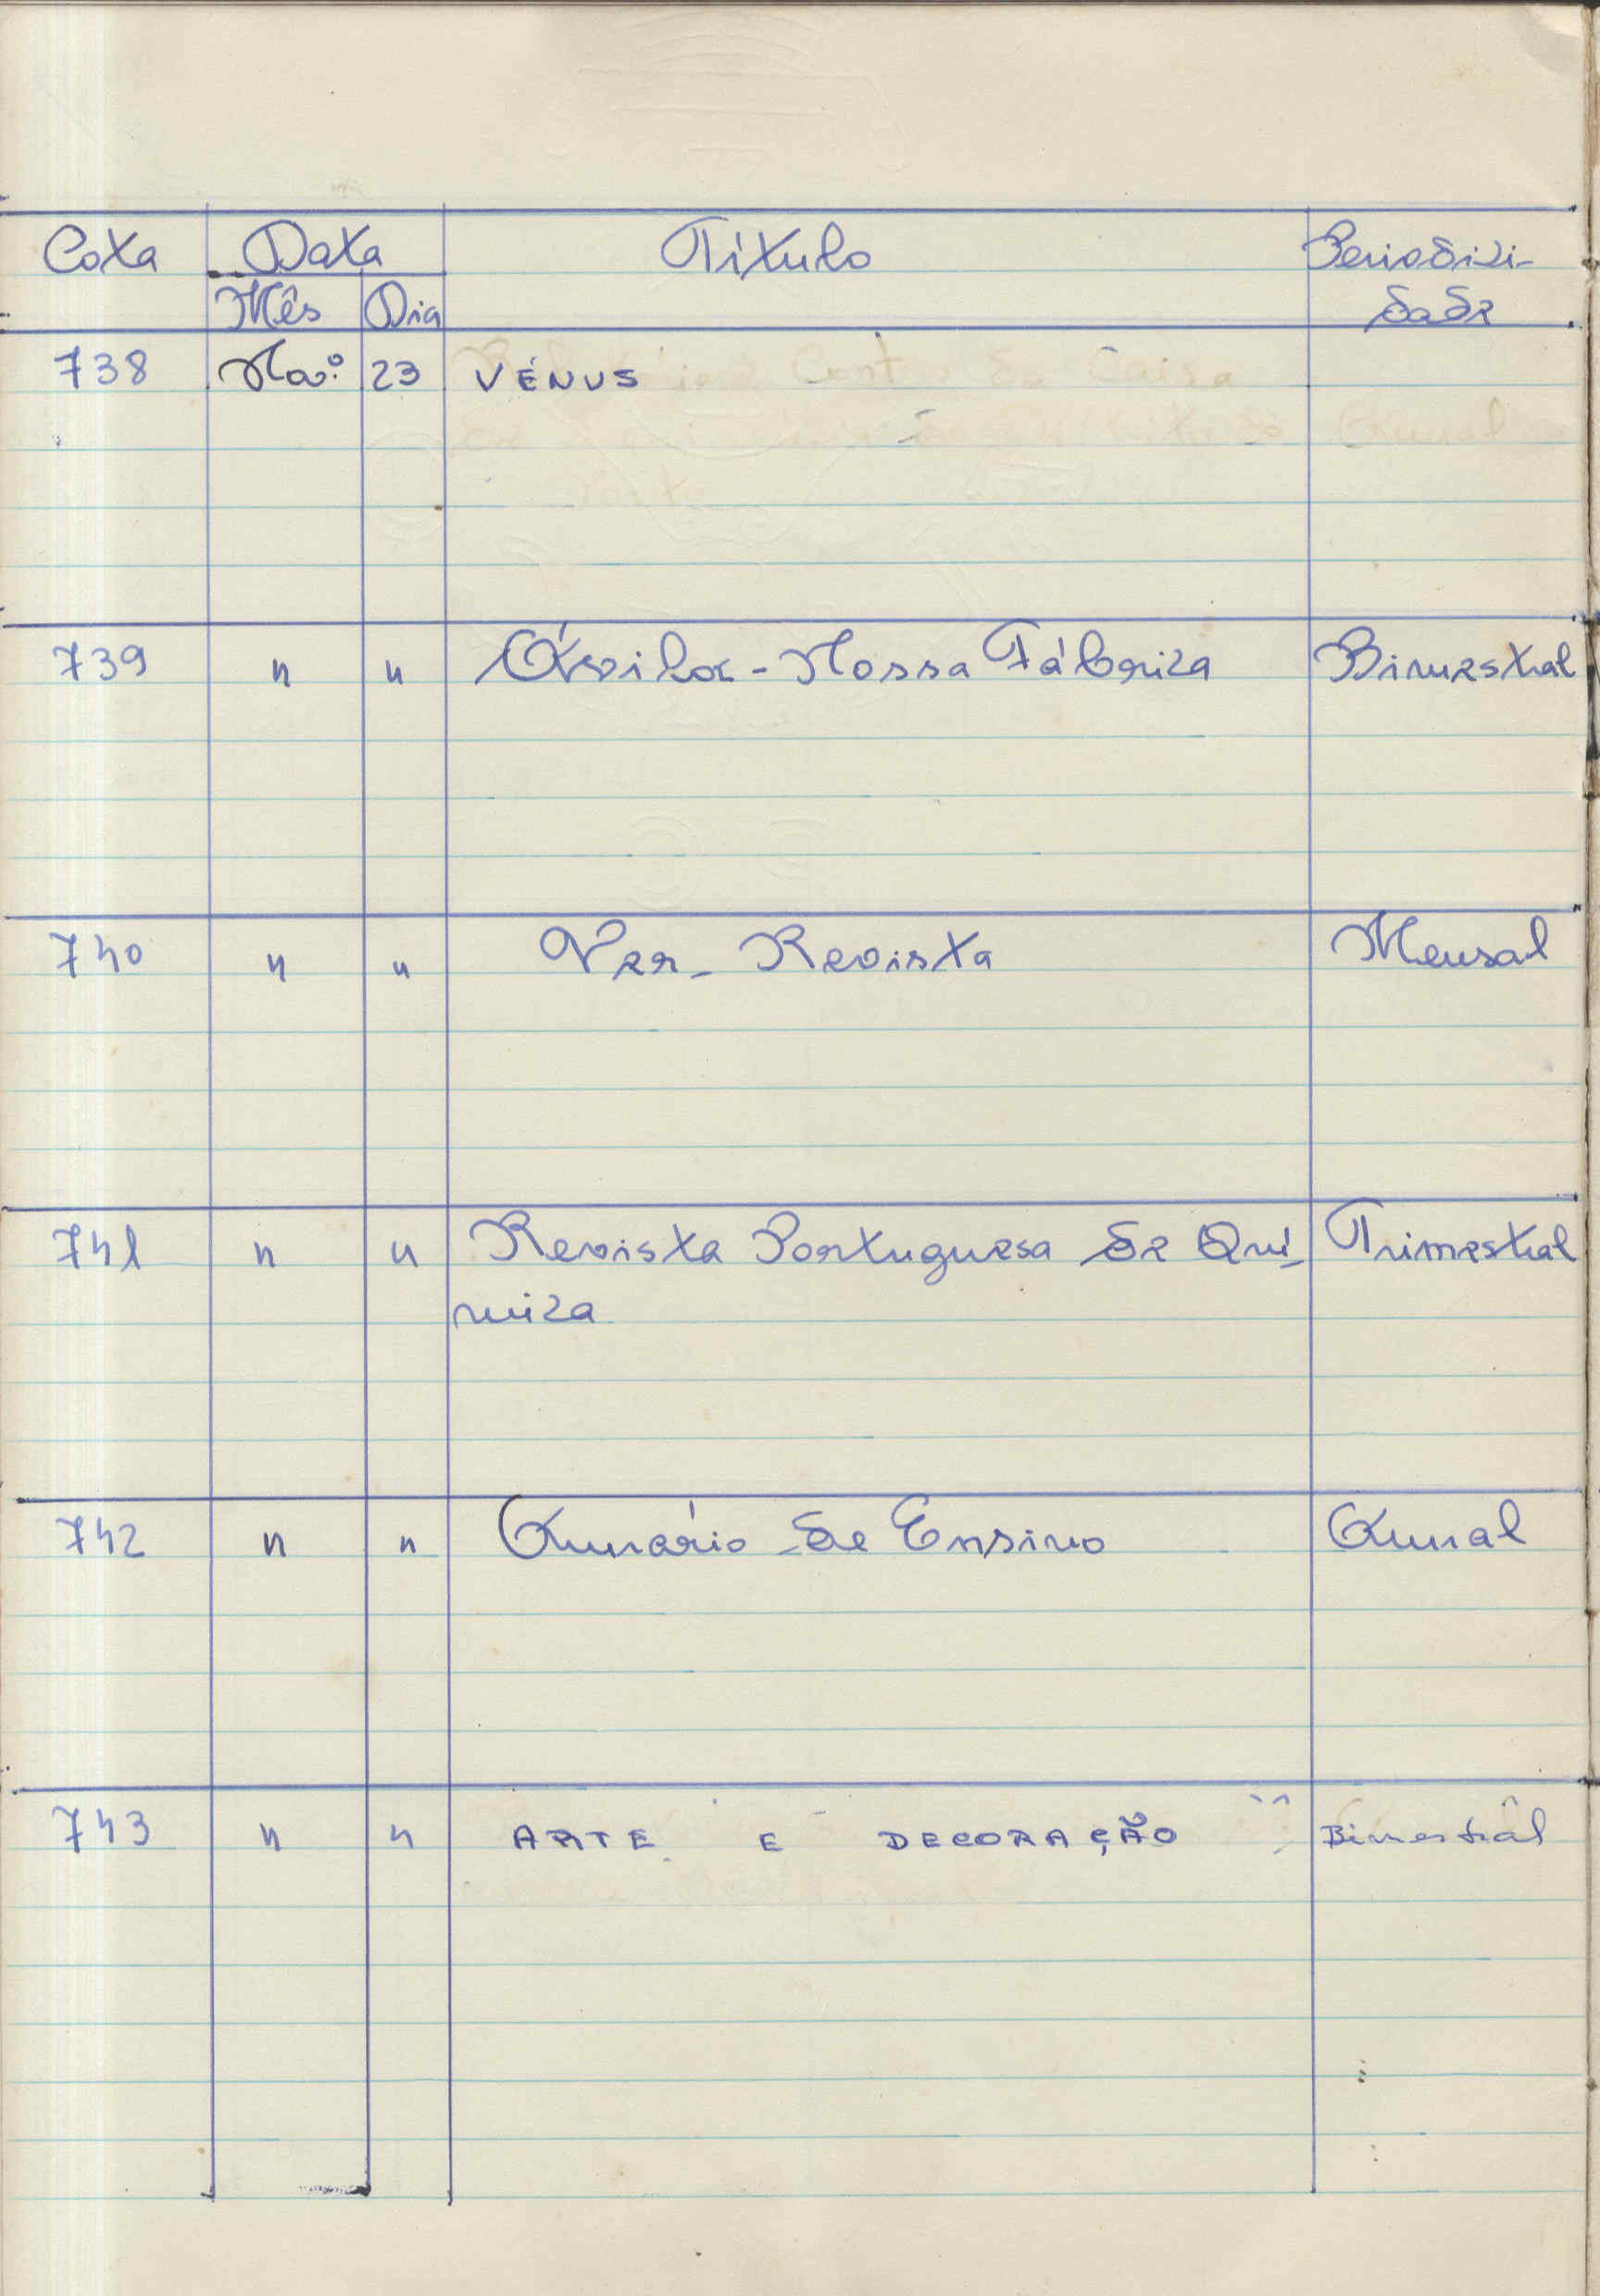 Cota Data Título Periodici-
Mês Dia dade
738 Nov.º 23 VÉNUS
739 " " Ávila - Nossa Fábrica Bimestral
740 " " Ver - Revista Mensal
741 " " Revista Portuguesa de Quí- Trimestral
mica
742 " " Anuário de Ensino Anual
743 " " ARTE E DECORAÇÃO Bimestral